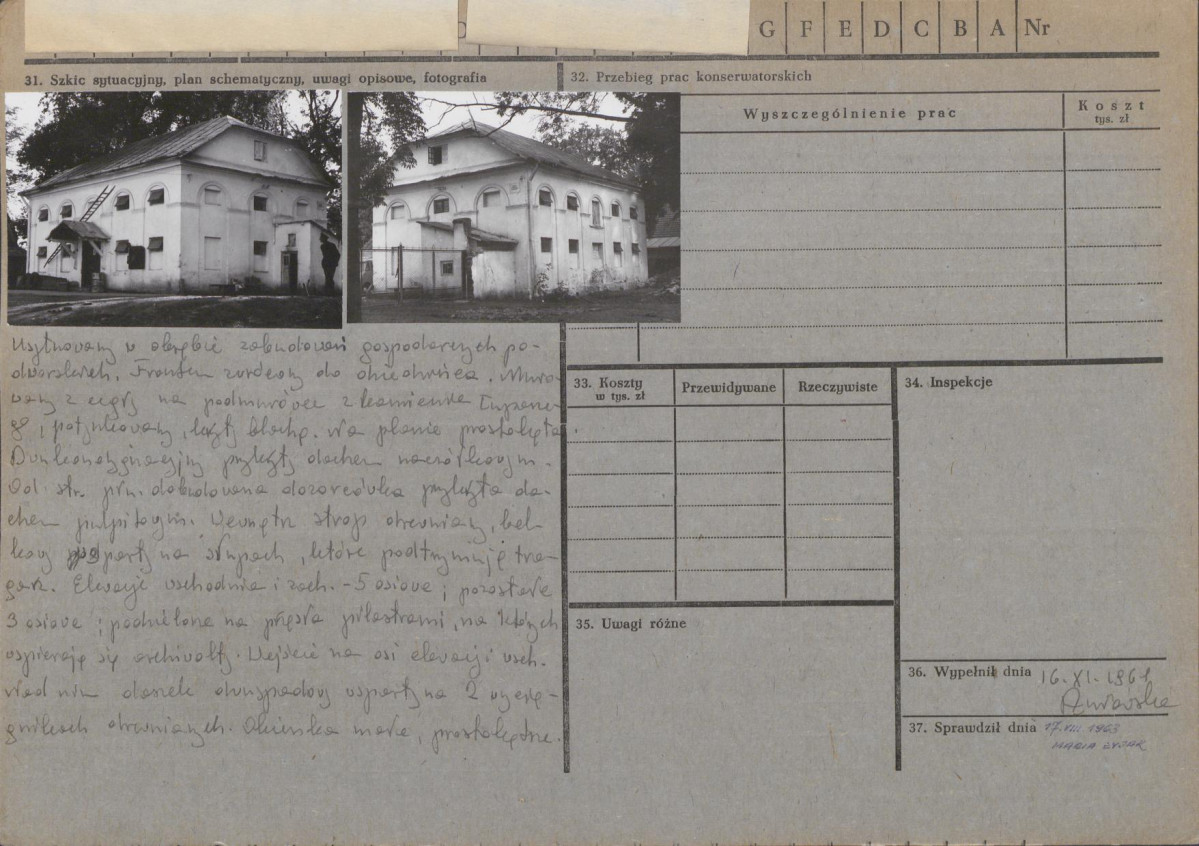 G F E D C B A Nr
31. Szkic sytuacyjny, plan schematyczny, uwagi opisowe, fotografia
32. Przebieg prac konserwatorskich
Wyszczególnienie prac
Koszt
tys. zł
Usytuowany w obrębie zabudowań gospodarczych po-
dworskich. Frontem zwrócony do dziedzińca. Muro-
wany z cegły na podmurówce z kamienia
potynkowany, kryty blachą. Na planie prostokąta.
Dwukondygnacyjny przykryty dachem naczółkowym.
Od str. płn. dobudowana dozorcówka przykryta da-
chem pulpitowym. Wewnątrz strop drewniany, bel-
kowy wsparty na słupach, które podtrzymują tra-
garz. Elewacje wschodnia i zach. - 5 osiowe; pozostałe
3 osiowe; podzielone na przęsła pilastrami, na których
wspierają się archiwolty. Wejście na osi elewacji wsch.
Nad nim daszek dwuspadowy wsparty na 2
drewnianych. Okienka małe, prostokątne.
33. Koszty
w tys. zł
Przewidywane
Rzeczywiste
34. Inspekcje
35. Uwagi różne
36. Wypełnił dnia 16. XI. 1961
37. Sprawdził dnia 17. VIII 1963